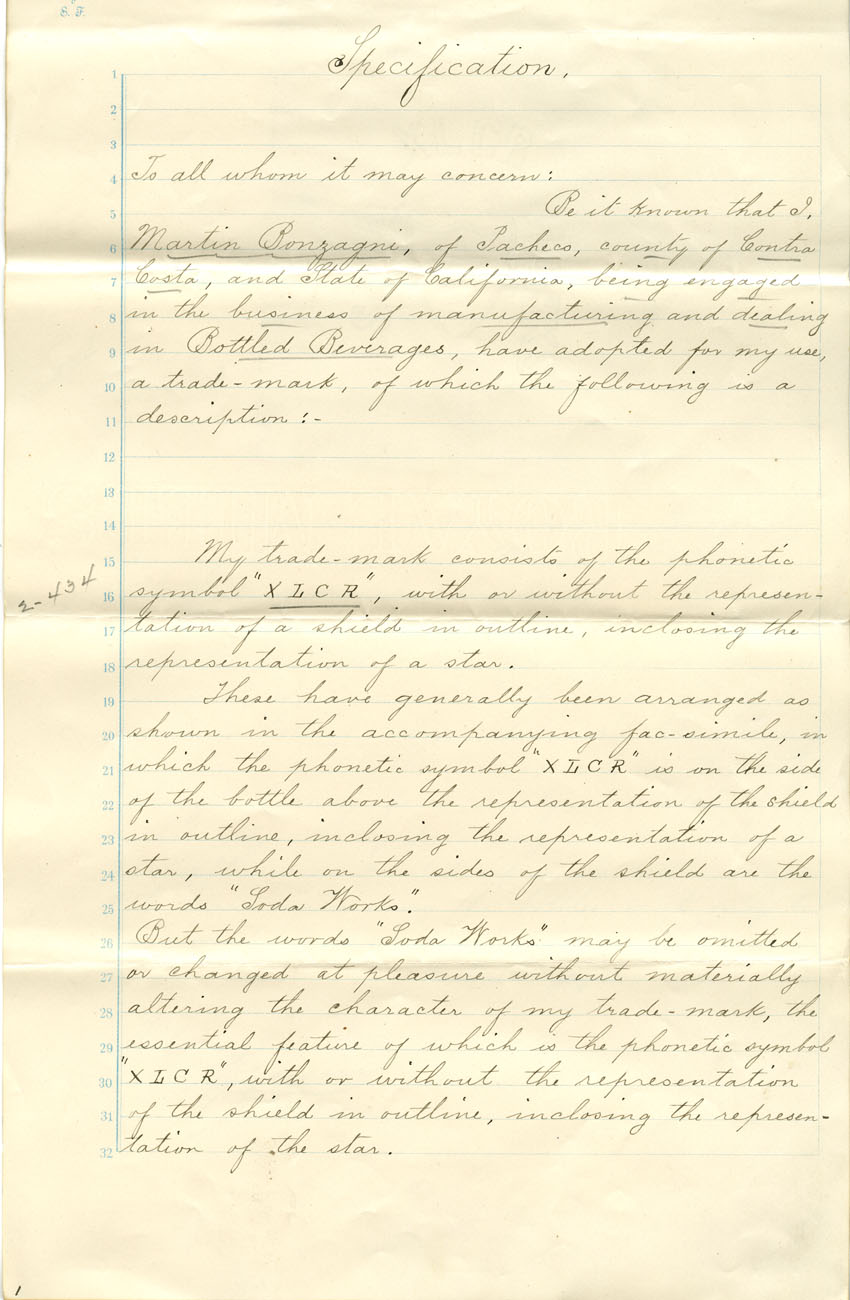 S. F.
Specification.
1
2
3
4 To all whom it may concern:
5 Be it known that I,
6 Martin Bonzagni, of Pacheco, county of Contra
7 Costa, and State of California, being engaged
8 in the business of manufacturing and dealing
9 in Bottled Beverages, have adopted for my use,
10 a trade-mark, of which the following is a
11 description:-
12
13
14
15 My trade-mark consists of the phonetic
2-434
16 symbol "XLCR", with or without the represen-
17 tation of a shield in outline, inclosing the
18 representation of a star.
19 These have generally been arranged as
20 shown in the accompanying fac-simile, in
21 which the phonetic symbol "XLCR" is on the side
22 of the bottle above the representation of the shield
23 in outline, inclosing the representation of a
24 star, while on the sides of the shield are the
25 words "Soda Works".
26 But the words "Soda Works" may be omitted
27 or changed at pleasure without materially
28 altering the character of my trade-mark, the
29 essential feature of which is the phonetic symbol
30 "XLCR", with or without the representation
31 of the shield in outline, inclosing the represen-
32 tation of the star.
1